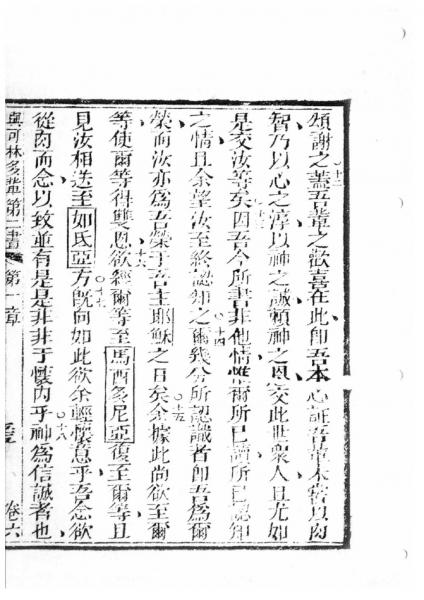 頌謝之十二蓋吾輩之歡喜在此即吾本心証吾輩不嘗以肉
智乃以心之淳以神之誠賴神之恩交此世眾人且尤如
是交汝等矣十三因吾今所書非他情惟爾所已讀所已認知
之情且余望汝至終認知之十四爾幾分所認識者即吾為爾
榮而汝亦為吾榮于吾主耶穌之日矣十五余據此尚欲至爾
等使爾等得雙恩十六欲經爾等至馬西多尼亞復至爾等且
見汝相送至如氐亞方十七既向如此欲余輕懷意乎吾念欲
從肉而念以致並有是是非非于懷內乎十八神為信誠者也
與可林多輩第二書 第一章 卷六